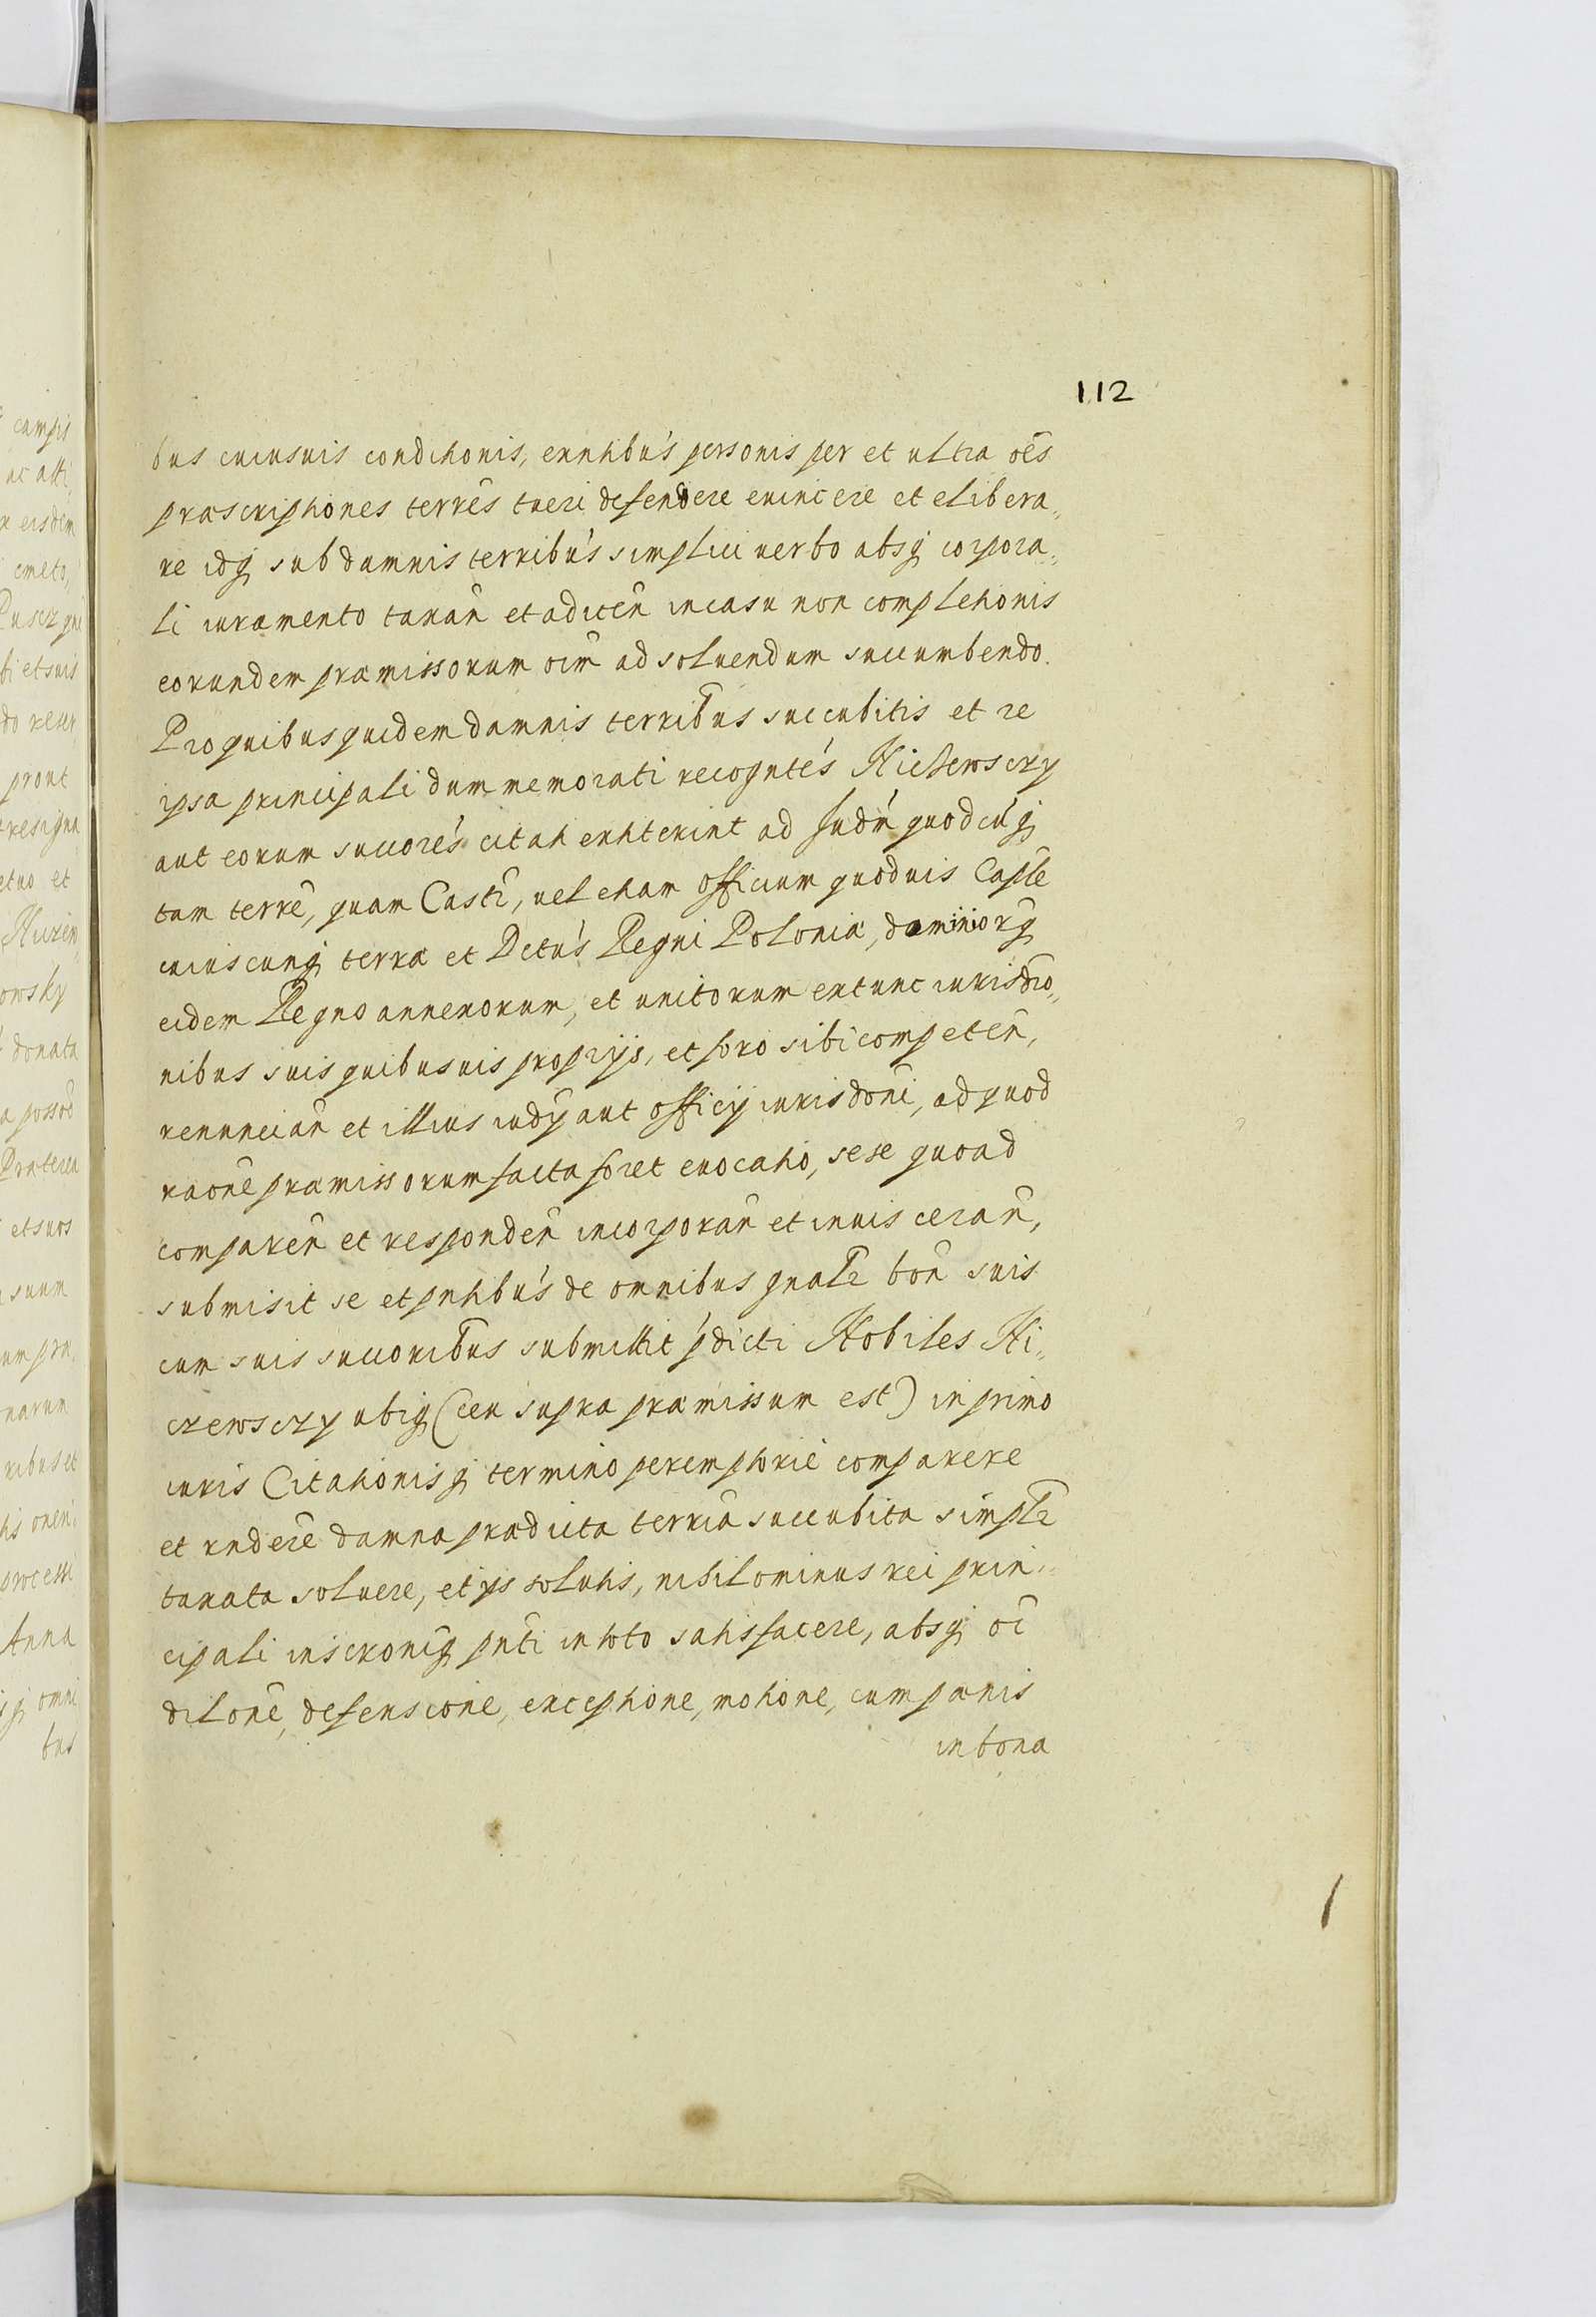 112
bus cuiusuis conditionis, enntibus personis per et ultra oēs
præscriptiones terrēs tueri defendere euincere et elibera„
re idq sub damnis terribus simplici uerbo absq corpora„
li iuramento taxan̄ et adiicen̄ in casu non completionis
eorundem præmissorum oim̄ ad soluendum succumbendo.
Pro quibus quidem damnis terribus succubitis et re
ipsa principali dum memorati recogntés Niczewsczy
aut eorum succorés citati extiterint ad Iudm̄ quodcúq
tam terrē, quam Castr̄, uel etiam officium quoduis Capl̄e
cuiuscunq terræ et Dctús Regni Poloniæ, dominiorq̄
eidem Regno annexorum, et unitorum extunc iurisdic̄o„
nibus suis quibusuis proprijs, et foro sibi competen̄,
renuncian̄ et illius iudij aut officij iurisdōni, ad quod
raōne præmissorum facta foret euocatio, sese quoad
comparen̄ et responden̄ incorporan̄ et inuisceran̄,
submisit se et pntibús de omnibus gnalr̄ bon̄ suis
cum suis succoribus submittit pdicti Nobiles Ni„
czewsczy ubiq (ceu supra præmissum est) in primo
iuris Citationisq termino peremptorie comparere
et rndere damna prædicta terria succubita simplr̄
taxata soluere, et ijs solutis, nihilominus rei prin„
cipali inscronīq pnti in toto satisfacere, absq oī
dilōne, defenscione, exceptione, motione, cum pænis
in bona
campis
ac alti
eisdem
cmeto,
bi et suis
prout
resigna
etuo et
owsky
donata
et suos
suum
narum
ribus et
processi
Anna
omni
bus